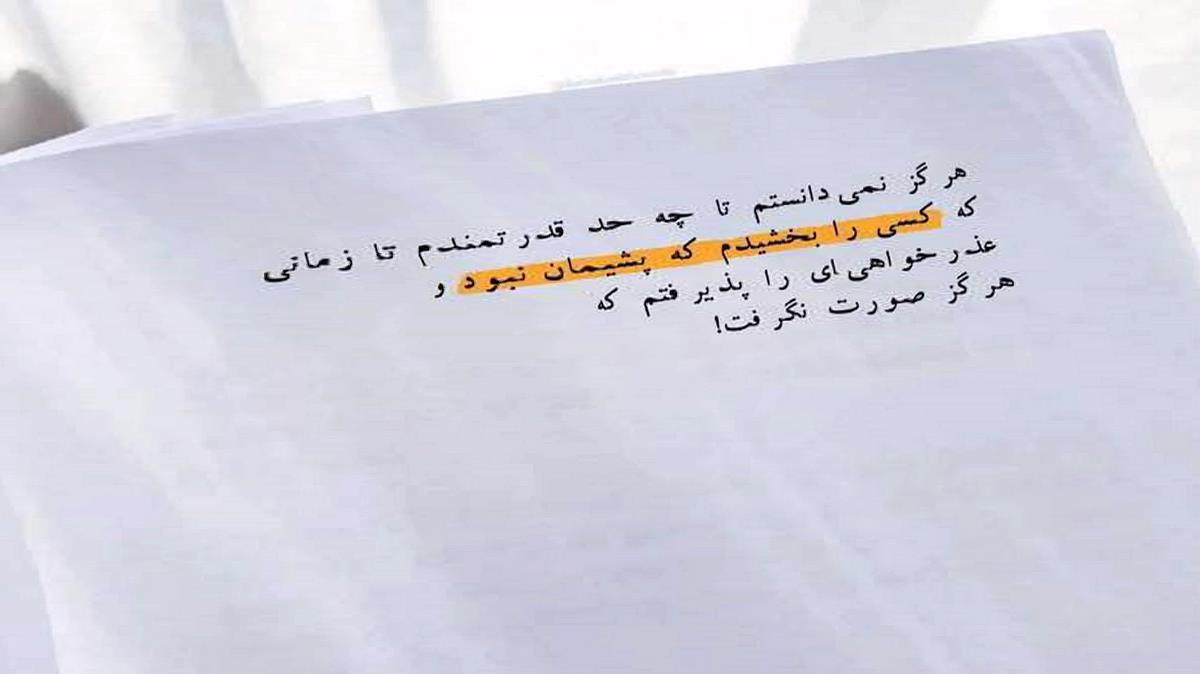 هرگز نمی‌دانستم تا چه حد قدرتمندم تا زمانی
که کسی را بخشیدم که پشیمان نبود و
عذرخواهی‌ای را پذیرفتم که
هرگز صورت نگرفت!